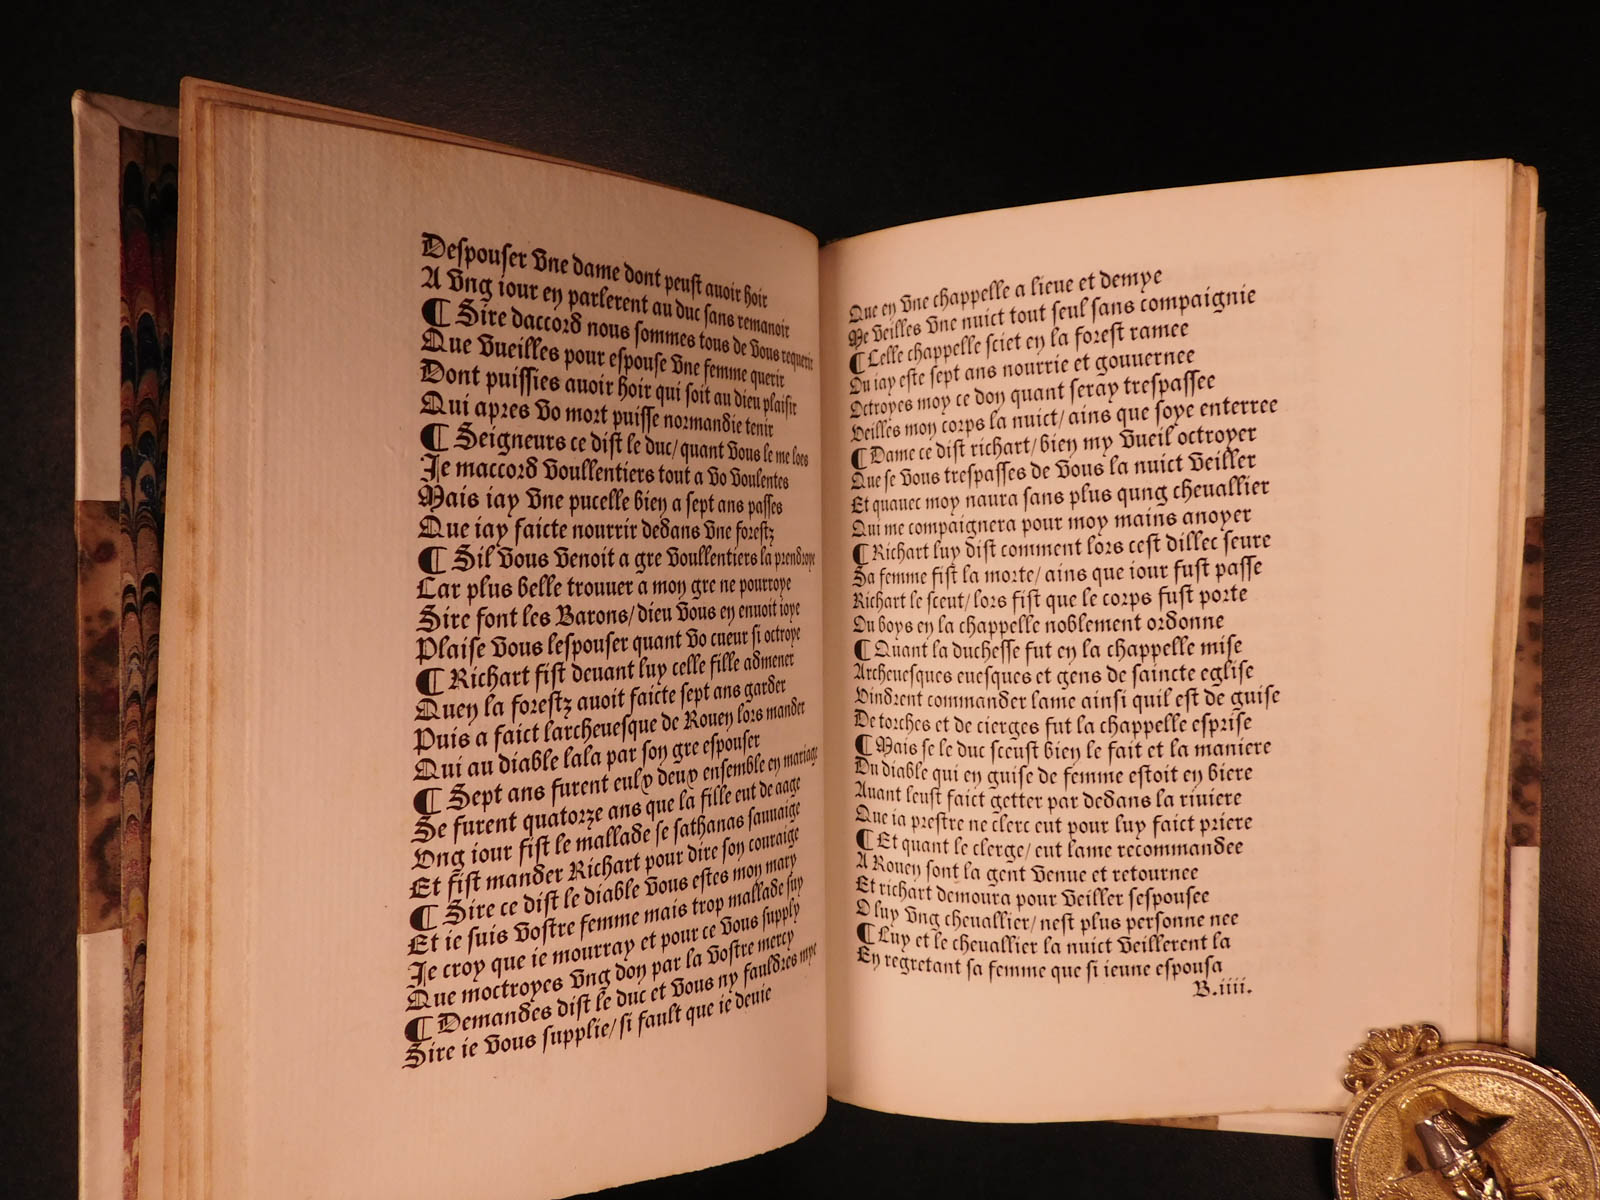 Despouser vne dame dont peust auoir hoir
A vng iour en parlerent au duc sans remanoir
¶ Sire daccord nous sommes tous de vous requerir
Que vueilles pour espouse vne femme querir
Dont puissies auoir hoir qui soit au dieu plaisir
Qui apres vo mort puisse normandie tenir
¶ Seigneurs ce dist le duc/ quant vous le me loes
Je maccord voullentiers tout a vo voulentes
Mais iay vne pucelle bien a sept ans passes
Que iay faicte nourrir dedans vne forestz
¶ Sil vous venoit a gre voullentiers la prendroye
Car plus belle trouuer a mon gre ne pourroye
Sire font les Barons/ dieu vous en enuoit ioye
Plaise vous lespouser quant vo cueur si octroye
¶ Richart fist deuant luy celle fille admener
Quen la forestz auoit faicte sept ans garder
Puis a faict larcheuesque de Rouen lors mander
Qui au diable lala par son gre espouser
¶ Sept ans furent eulx deux ensemble en mariage
Se furent quatorze ans que la fille eut de aage
Vng iour fist le mallade se sathanas sauuaige
Et fist mander Richart pour dire son couraige
¶ Sire ce dist le diable vous estes mon mary
Et ie suis vostre femme mais trop mallade suy
Je croy que ie mourray et pour ce vous supply
Que moctroyes vng don par la vostre mercy
¶ Demandes dist le duc et vous ny fauldres mye
Sire ie vous supplie/ si fault que ie deuie
Que en vne chappelle a lieue et demye
Me veilles vne nuict tout seul sans compaignie
¶ Celle chappelle sciet en la forest ramee
Ou iay este sept ans nourrie et gouuernee
Octroyes moy ce don quant seray trespassee
Veilles mon corps la nuict/ ains que soye enterree
¶ Dame ce dist richart/ bien my vueil octroyer
Que se vous trespasses de vous la nuict veiller
Et quauec moy naura sans plus qung cheuallier
Qui me compaignera pour moy mains anoyer
¶ Richart luy dist comment lors cest dillec seure
Sa femme fist la morte/ ains que iour fust passe
Richart le sceut/ lors fist que le corps fust porte
Ou boys en la chappelle noblement ordonne
¶ Quant la duchesse fut en la chappelle mise
Archeuesques euesques et gens de saincte eglise
Vindrent commander lame ainsi quil est de guise
De torches et de cierges fut la chappelle esprise
¶ Mais se le duc sceust bien le fait et la maniere
Du diable qui en guise de femme estoit en biere
Auant leust faict getter par dedans la riuiere
Que ia prestre ne clerc eut pour luy faict priere
¶ Et quant le clerge/ eut lame recommandee
A Rouen sont la gent venue et retournee
Et richart demoura pour veiller sespousee
O luy vng cheuallier/ nest plus personne nee
¶ Luy et le cheuallier la nuict veillerent la
En regretant sa femme que si ieune espousa
B.iiii.